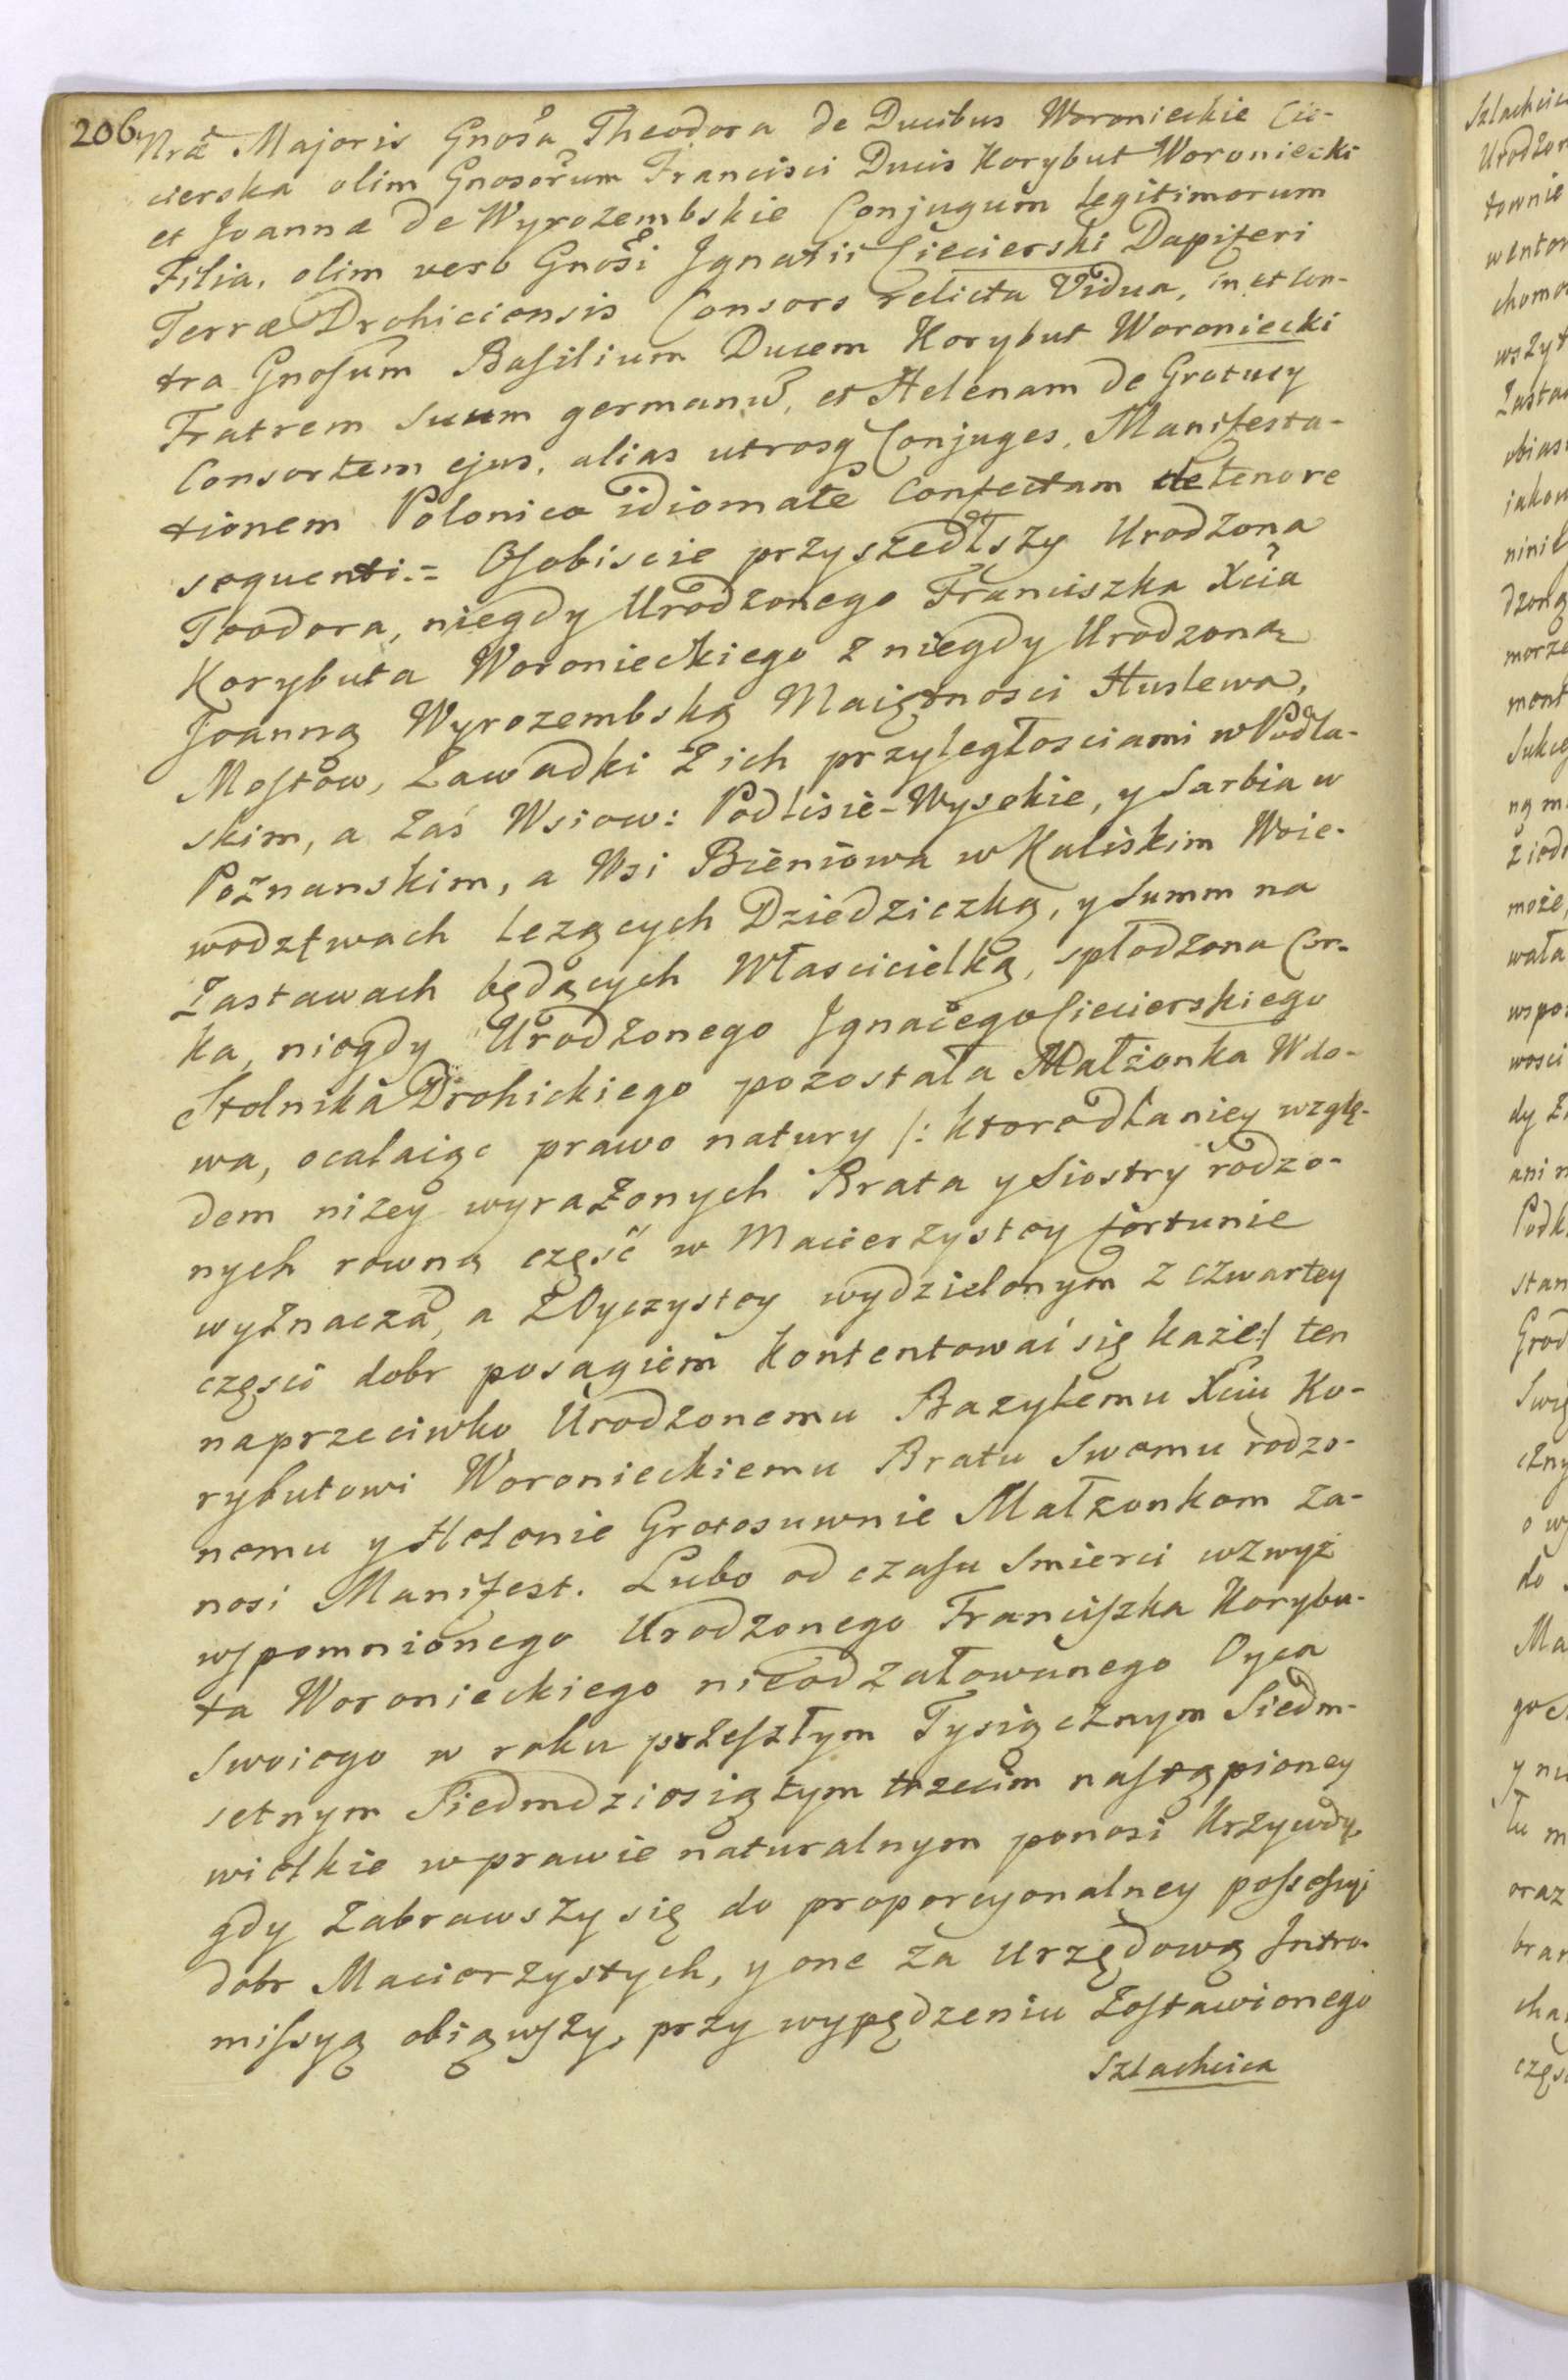 206.
Nrae Majoris Gnosa Theodora de Ducibus Woronieckie Cie-
cierska olim Gnosorum Francisci Ducis Korybut Woroniecki
et Joannæ de Wyrozembskie Conjugum legitimorum
Filia, olim vero Gnosi Jgnatii Ciecierski Dapiferi
Terræ Drohiciensis Consors relicta Vidua, in et con-
tra Gnosum Basilium Ducem Korybut Woroniecki
Fratrem suum germanum, et Helenam de Grotucy
Consortem ejus, alias utrosq Conjuges, Manifesta-
tionem Polonico idiomate Confectam de tenore
sequenti.= Osobiscie przyszedłszy Urodzona
Teodora, niegdy Urodzonego Franciszka Xcia
Korybuta Woronieckiego z niegdy Urodzoną
Joanną Wyrozembską Maiętnosci Huslewa,
Mostow, Zawadki z ich przyległosciami w Podla-
skim, a zaś Wsiow: Podlisie-Wysokie, y Sarbia w
Poznanskim, a Wsi Bieniowa w Kaliskim Woie-
wodztwach lezących Dziedziczką, y Summ na
Zastawach będących Włascicielką, spłodzona Cor-
ka, niegdy Urodzonego Jgnacego Ciecierskiego
Stolnika Drohickiego pozostała Małżonka Wdo-
wa, ocalaiąc prawo natury /: ktore dla niey wzglę-
dem niżey wyrażonych Brata y Siostry rodzo-
nych rowną część w Macierzystey fortunie
wyznacza, a z Oyczystey wydzielonym z czwartey
częsci dobr posagiem kontentować się każe:/ ten
naprzeciwko Urodzonemu Bazylemu Xciu Ko-
rybutowi Woronieckiemu Bratu Swemu rodzo-
nemu y Helenie Grotosuwnie Małzonkom za-
nosi Manifest. Lubo od czasu smierci wzwyż
wspomnionego Urodzonego Franciszka Korybu-
ta Woronieckiego nieodzałowanego Oyca
Swoiego w roku przeszłym Tysiącznym Siedm-
setnym Siedmdziesiątym trzecim nastąpioney
wielkie w prawie naturalnym ponosi Krzywdy,
gdy zabrawszy się do proporcyonalney possessyi
dobr Macierzystych, y one za Urzędową Intro-
missyą obiąwszy, przy wypędzeniu Zostawionego
Szlachcica